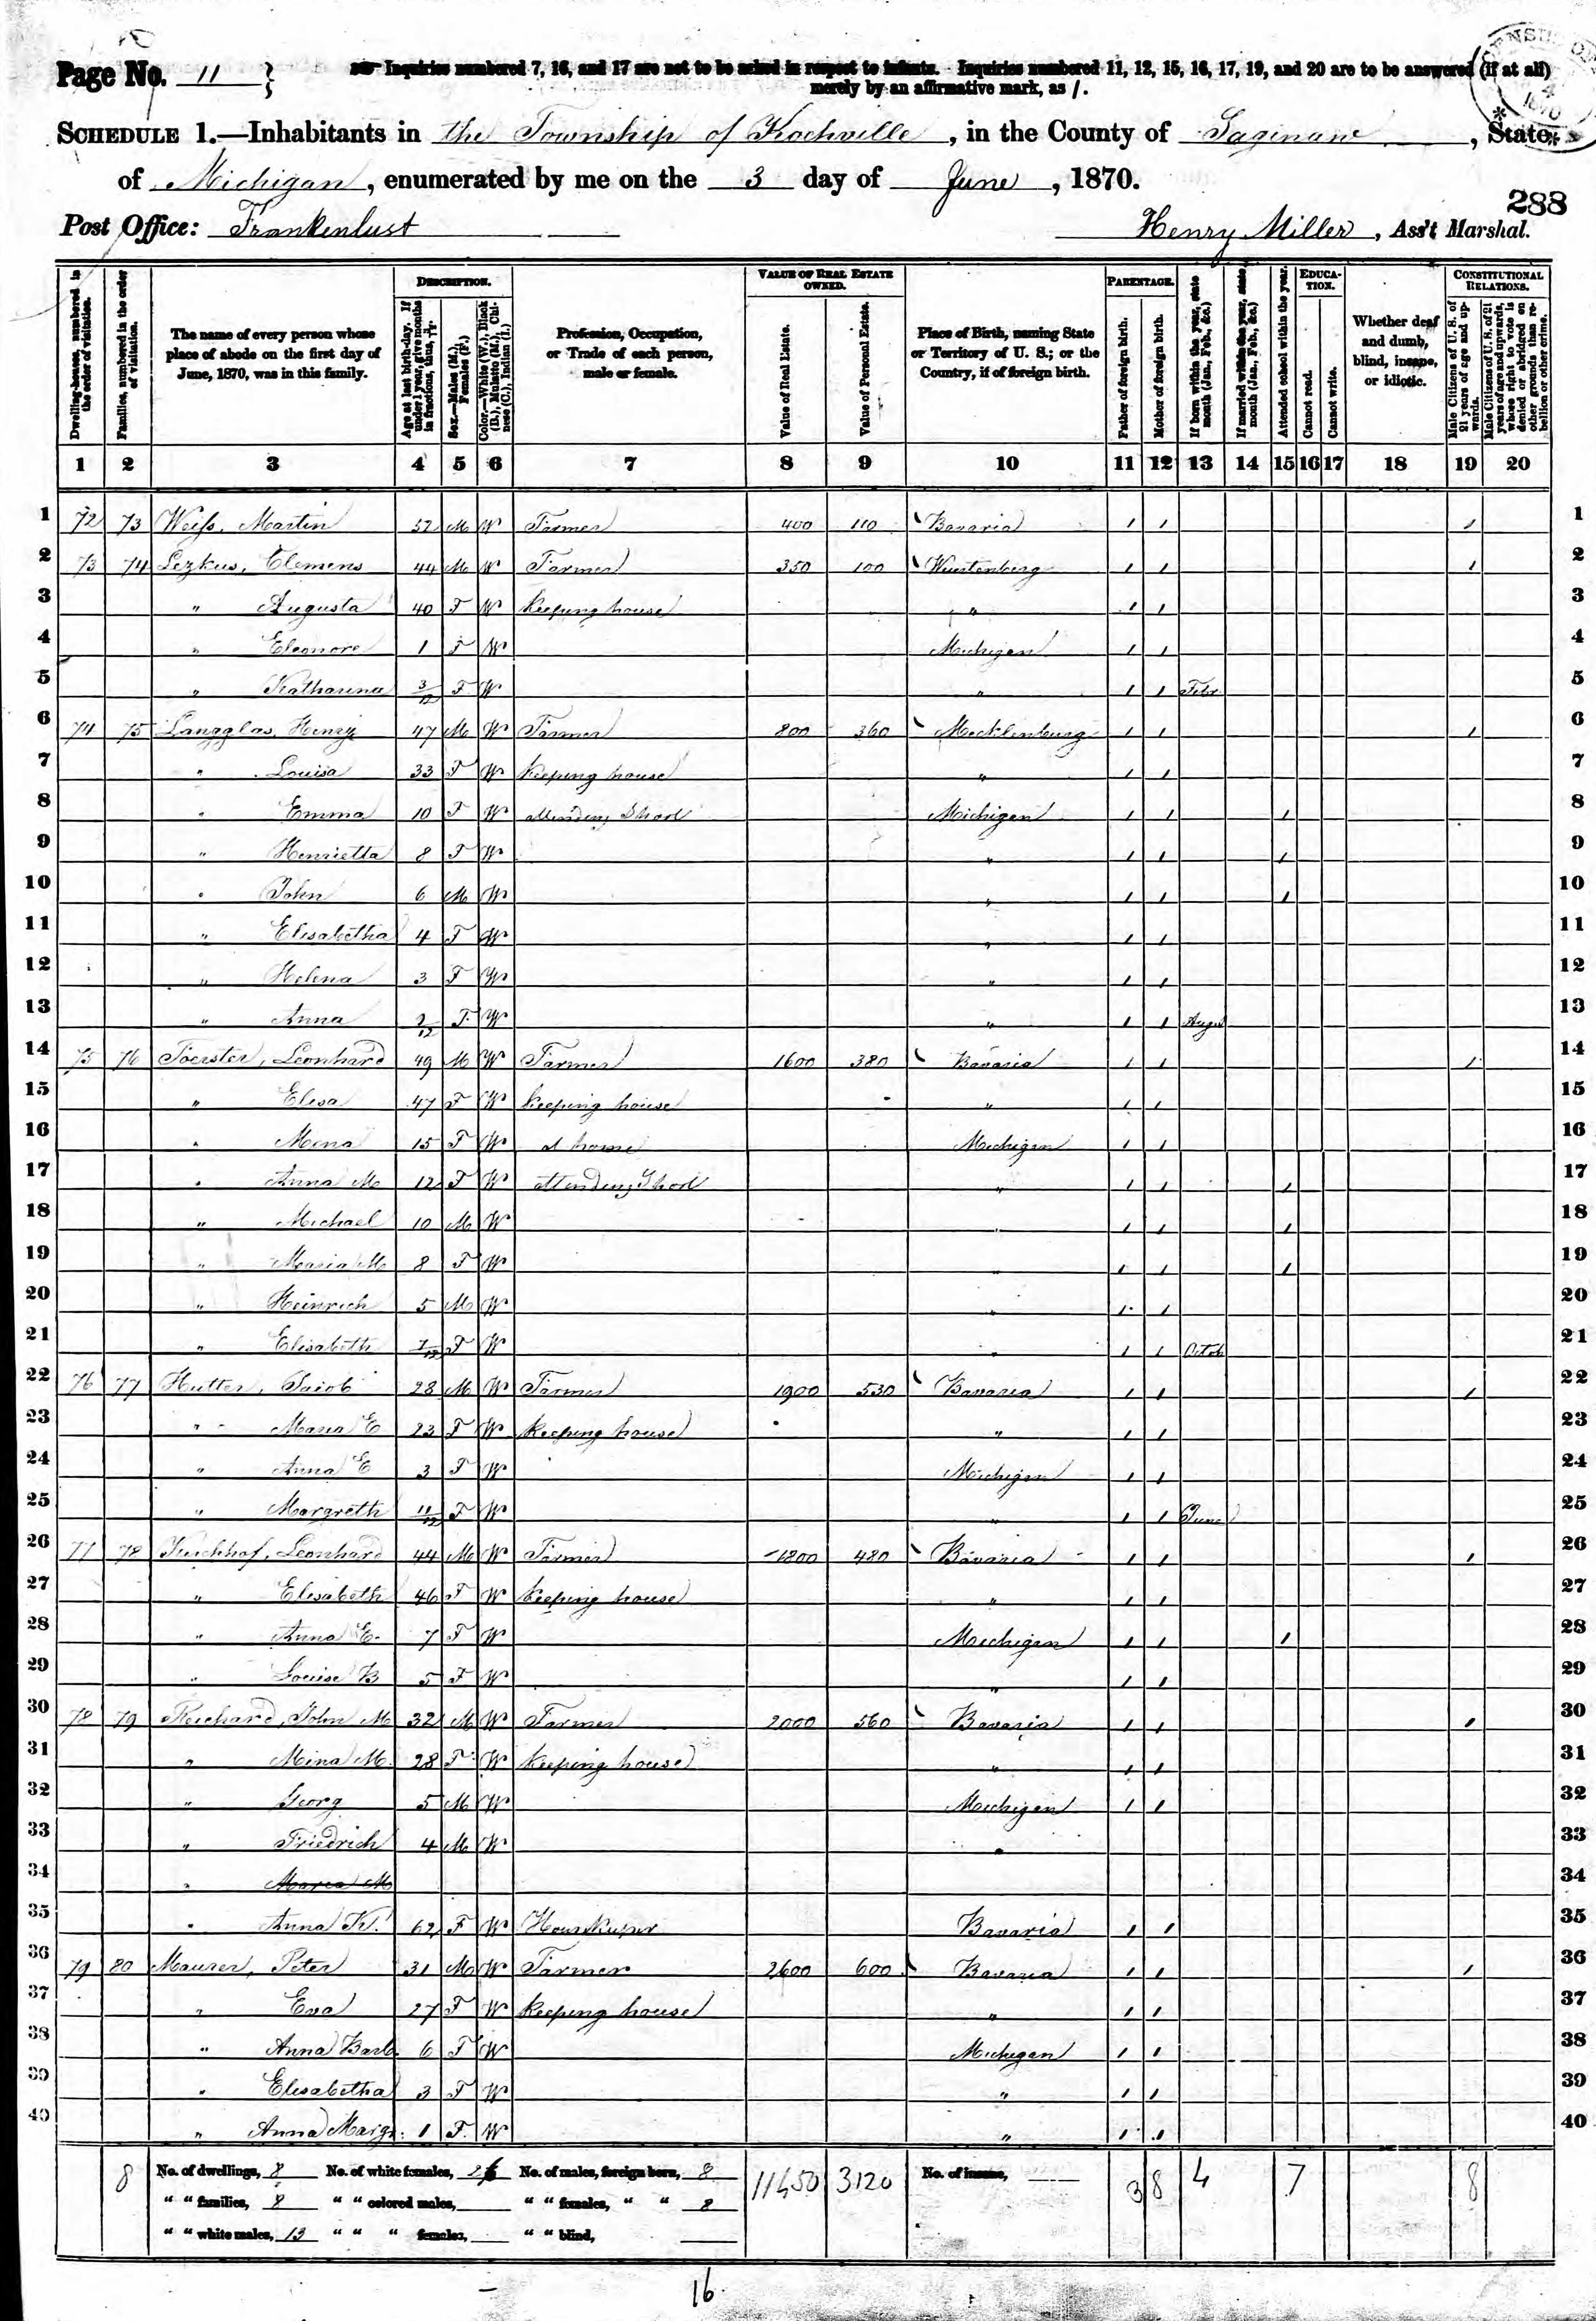 Page No. 11 }
Inquiries numbered 7, 16, and 17 are not to be asked in respect to infants. Inquiries numbered 11, 12, 15, 16, 17, 19, and 20 are to be answered (if at all)
merely by an affirmative mark, as /.
1870
SCHEDULE 1.—Inhabitants in the Township of Kochville, in the County of Saginaw, State
of Michigan, enumerated by me on the 3 day of June, 1870.
288
Post Office: Frankenlust Henry Miller, Ass't Marshal.
Dwelling-houses, numbered in the order of visitation.
Families, numbered in the order of visitation.
The name of every person whose place of abode on the first day of June, 1870, was in this family.
DESCRIPTION.
Age at last birth-day. If under 1 year, give months in fractions, thus, 3/12.
Sex.—Males (M.), Females (F.)
Color.—White (W.), Black (B.), Mulatto (M.), Chinese (C.), Indian (I.)
Profession, Occupation, or Trade of each person, male or female.
VALUE OF REAL ESTATE OWNED.
Value of Real Estate.
Value of Personal Estate.
Place of Birth, naming State or Territory of U. S.; or the Country, if of foreign birth.
PARENTAGE.
Father of foreign birth.
Mother of foreign birth.
If born within the year, state month (Jan., Feb., &c.)
If married within the year, state month (Jan., Feb., &c.)
Attended school within the year.
EDUCATION.
Cannot read.
Cannot write.
Whether deaf and dumb, blind, insane, or idiotic.
CONSTITUTIONAL RELATIONS.
Male Citizens of U. S. of 21 years of age and upwards.
Male Citizens of U. S. of 21 years of age and upwards, whose right to vote is denied or abridged on other grounds than rebellion or other crime.
1 2 3 4 5 6 7 8 9 10 11 12 13 14 15 16 17 18 19 20
1 72 73 Weiss, Martin 52 M W Farmer 400 110 Bavaria / / / 1
2 73 74 Lezkus, Clemens 44 M W Farmer 350 100 Wurtenberg / / / 2
3 " Augusta 40 F W Keeping house " / / 3
4 " Eleonore 1 F W Michigan / / 4
5 " Katharina 3/12 F W " / / Febr. 5
6 74 75 Langglas, Henry 47 M W Farmer 800 360 Mecklenburg / / / 6
7 " Louisa 33 F W Keeping house " / / 7
8 " Emma 10 F W attending Shool Michigan / / / 8
9 " Henrietta 8 F W " / / / 9
10 " John 6 M W " / / / 10
11 " Elisabetha 4 F W " / / 11
12 " Helena 3 F W " / / 12
13 " Anna /12 F W " / / Augu 13
14 75 76 Foerster, Leonhard 49 M W Farmer 1600 380 Bavaria / / / 14
15 " Elisa 47 F W Keeping house " / / 15
16 " Mena 15 F W at home Michigan / / 16
17 " Anna M 12 F W attending Shool " / / / 17
18 " Michael 10 M W " / / / 18
19 " Maria M 8 F W " / / / 19
20 " Heinrich 5 M W " / / 20
21 " Elisabeth 7/12 F W " / / Octob 21
22 76 77 Hutter, Jacob 28 M W Farmer 1900 530 Bavaria / / / 22
23 " Maria E 23 F W Keeping house " / / 23
24 " Anna E 3 F W Michigan / / 24
25 " Margreth 11/12 F W " / / June 25
26 77 78 Kirchhof, Leonhard 44 M W Farmer 1800 480 Bavaria / / / 26
27 " Elisabeth 46 F W Keeping house " / / 27
28 " Anna E. 7 F W Michigan / / / 28
29 " Louise B 5 F W " / / 29
30 78 79 Reichard, John M 32 M W Farmer 2000 560 Bavaria / / / 30
31 " Mina M. 28 F W Keeping house " / / 31
32 " Georg 5 M W Michigan / / 32
33 " Friedrich 4 M W " 33
34 " Maria M 34
35 " Anna K. 62 F W Houskeeper Bavaria / / 35
36 79 80 Maurer, Peter 31 M W Farmer 2600 600 Bavaria / / / 36
37 " Eva 27 F W Keeping house " / / 37
38 " Anna Barb. 6 F W Michigan / / 38
39 " Elisabetha 3 F W " / / 39
40 " Anna Margr. 1 F W " / / 40
8 No. of dwellings, 8 No. of white females, 26 No. of males, foreign born, 8 11450 3120 No. of insane, 38 4 7 8
" " families, 8 " " colored males, " " females, " " 8
" " white males, 13 " " " females, " " blind,
16